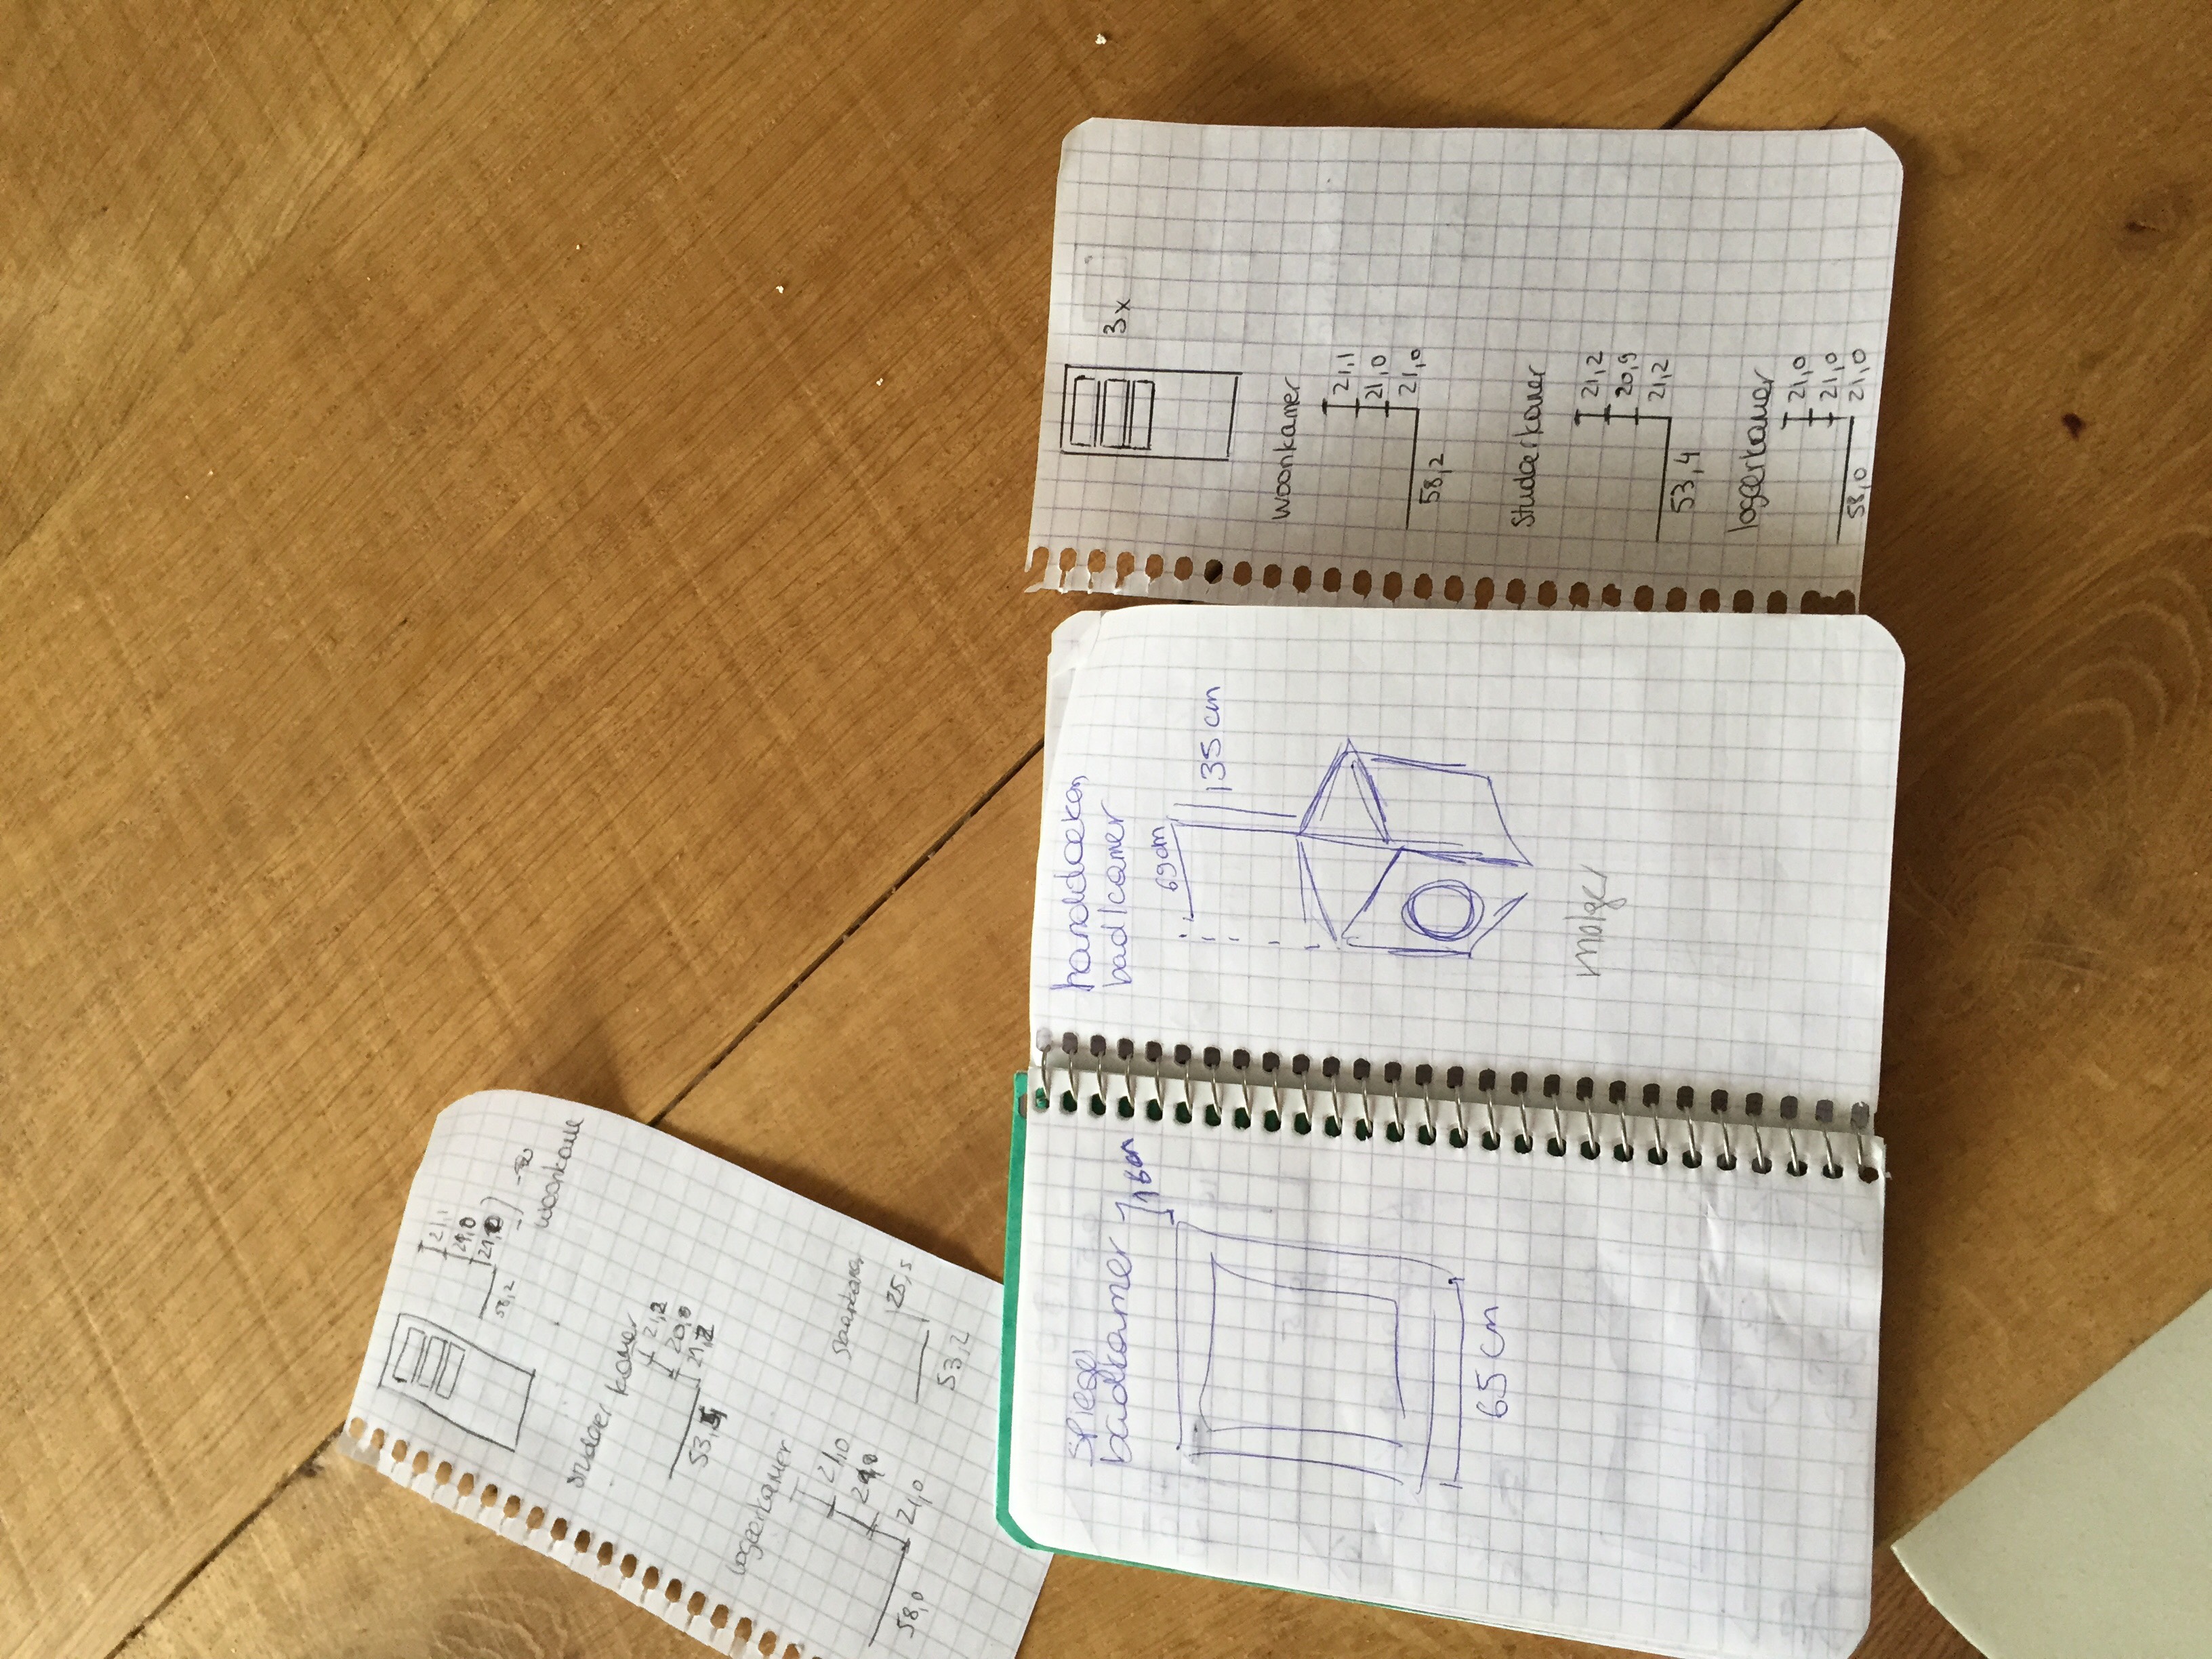 21,1
21,0
21,0
58,2
studeer kamer
21,2
20,9
21,2
53,4
logeerkamer
21,0
21,0
21,0
58,0
25,5
53,2
spiegel
badkamer
16cm
65 cm
handdoeken
badkamer
69cm
135 cm
3x
woonkamer
21,1
21,0
21,0
58,2
studeerkamer
21,2
20,9
21,2
53,4
logeerkamer
21,0
21,0
21,0
58,0